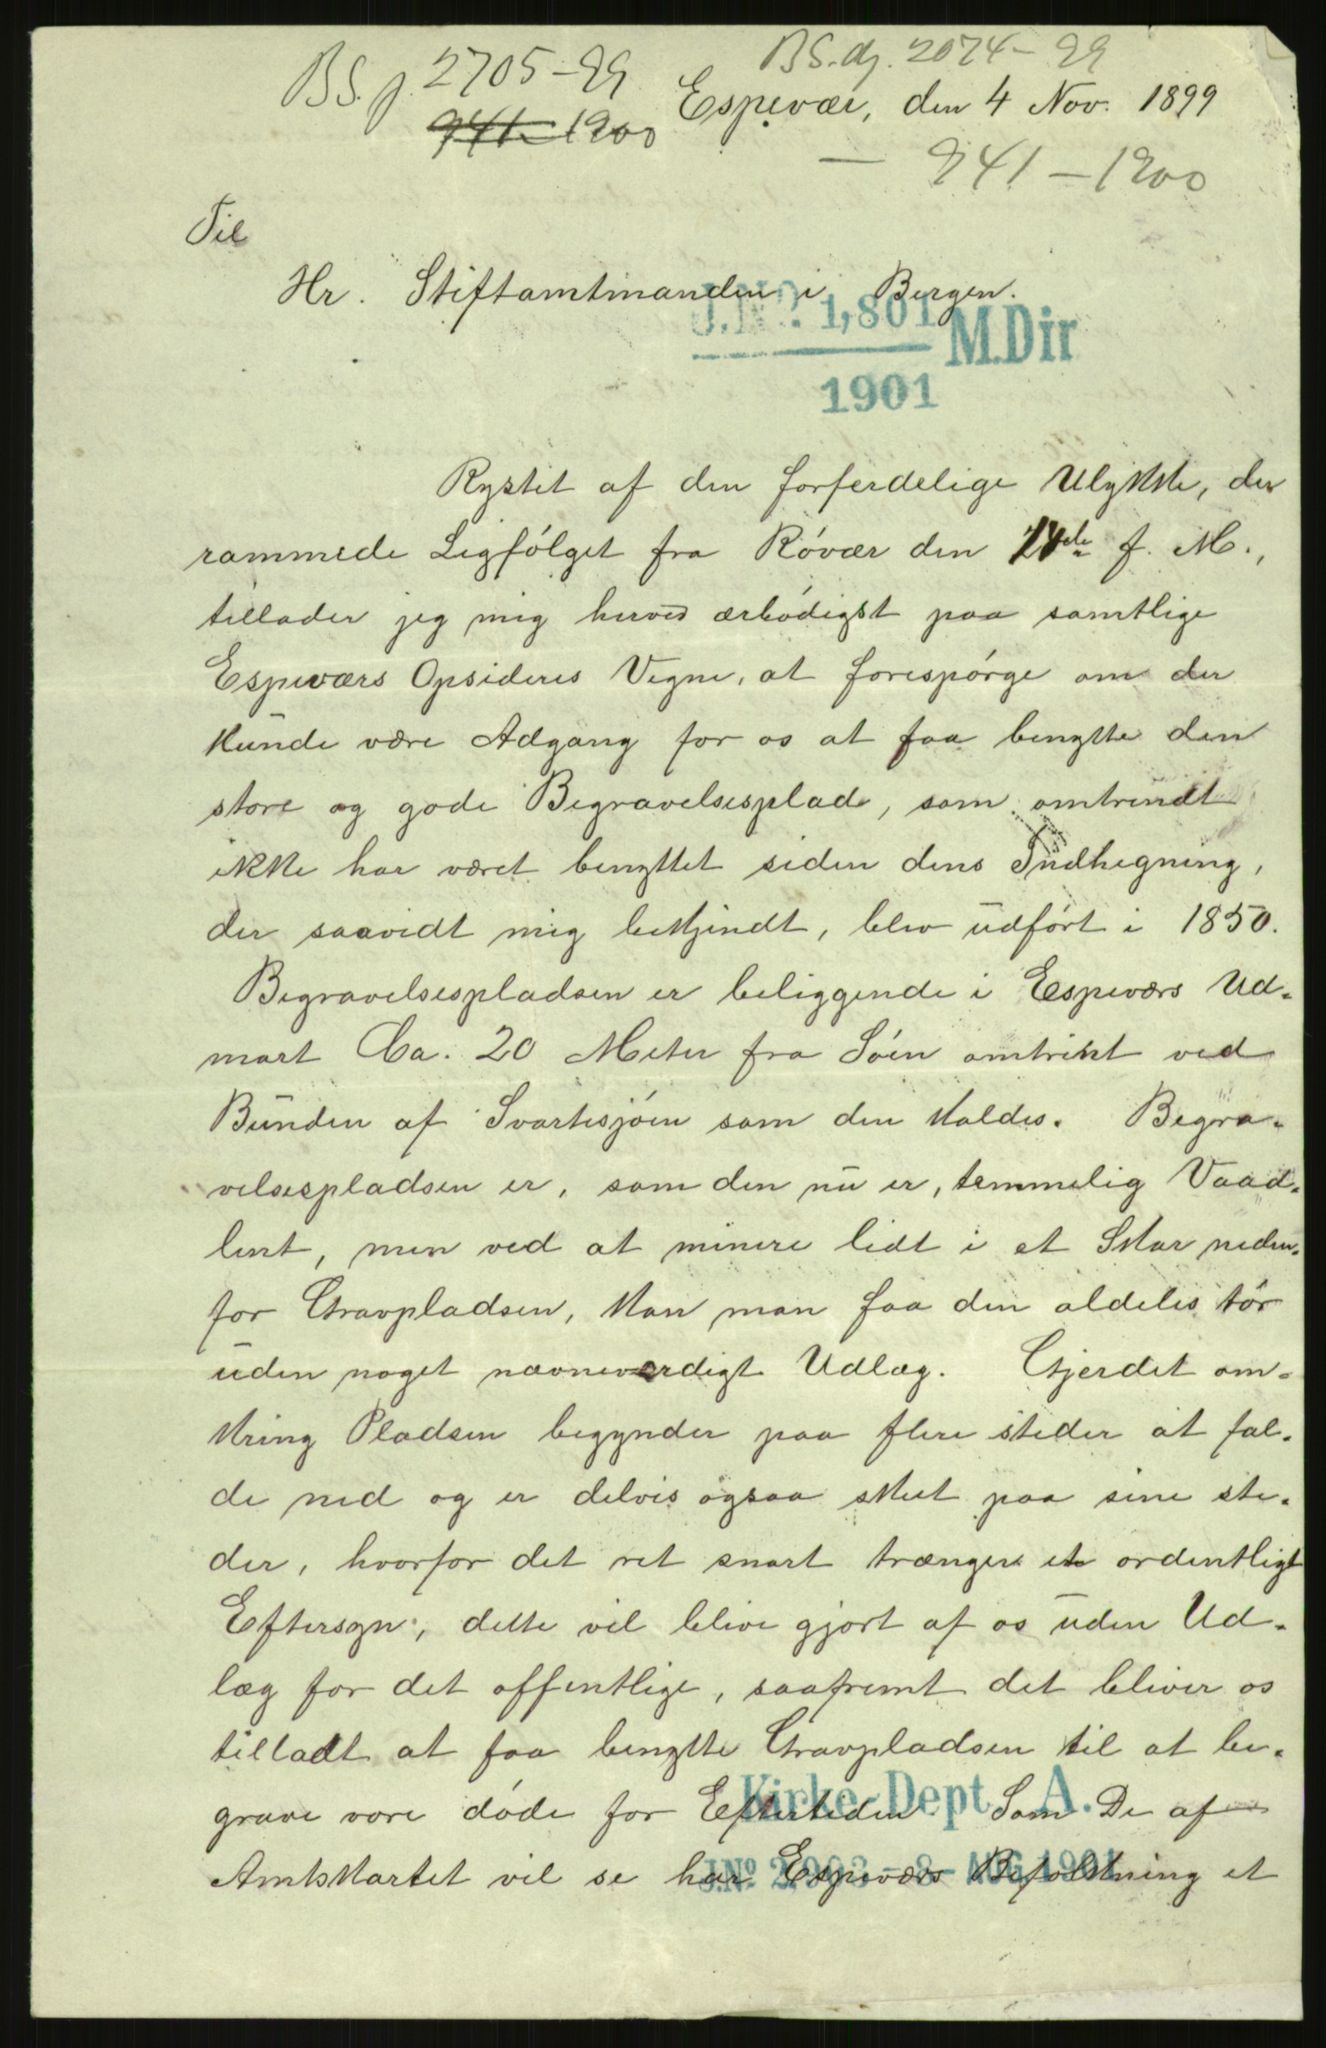 BS. j. 2705-99
BS. dj. 2074-99
Espevær, den 4 Nov. 1899
941-1900
— 941-1900
Til
Hr. Stiftamtmanden i Bergen.
J.No. 1,801 M.Dir
1901
Rystet af den forferdelige Ulykke, der
rammede Ligfölget fra Rövær den 24de f. M.,
tillader jeg mig herved ærbödigst paa samtlige
Espeværs Opsideres Vegne, at forespörge om der
kunde være Adgang for os at faa benytte den
store og gode Begravelsesplads, som omtrendt
ikke har været benyttet siden dens Indhegning,
der saavidt mig bekjendt, blev udfört i 1850.
Begravelsespladsen er beliggende i Espeværs Ud-
mark Ca. 20 Meter fra Söen omtrent ved
Bunden af Svartesjöen som den kaldes. Begra-
velsespladsen er, som den nu er, temmelig Vaad-
lent, men ved at minere lidt i et Skar neden-
for Gravpladsen, kan man faa den aldeles tör
uden noget nævneverdigt Udlæg. Gjerdet om-
kring Pladsen begynder paa flere steder at fal-
de ned og er delvis ogsaa skeet paa sine ste-
der, hvorfor det ret snart trænger et ordentligt
Eftersyn, dette vil blive gjort af os uden Ud-
læg for det offentlige, saafremt det bliver os
tilladt at faa benytte Gravpladsen til at be-
grave vore döde for Eftertiden Som De af
Kirke-Dept. A.
Amtskartet vil se har Espeværs Befolkning et
J.No. 2,903 - 8-AUG 1901